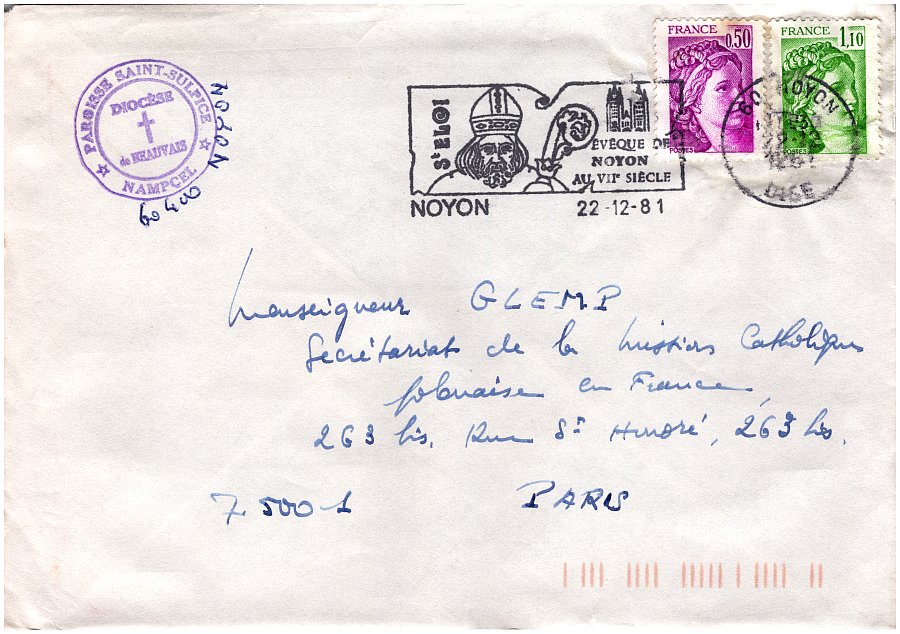 PAROISSE SAINT-SULPICE
DIOCÈSE
de BEAUVAIS
NAMPCEL
NOYON
60400
St ELOI
ÉVÊQUE DE
NOYON
AU VIIe SIÈCLE
NOYON 22-12-81
FRANCE
0,50
POSTES
FRANCE
1,10
POSTES
60 NOYON
OISE
Monseigneur GLEMP
Secrétariat de la Mission Catholique
polonaise en France
263 bis, Rue St Honoré, 263 bis.
75001 PARIS